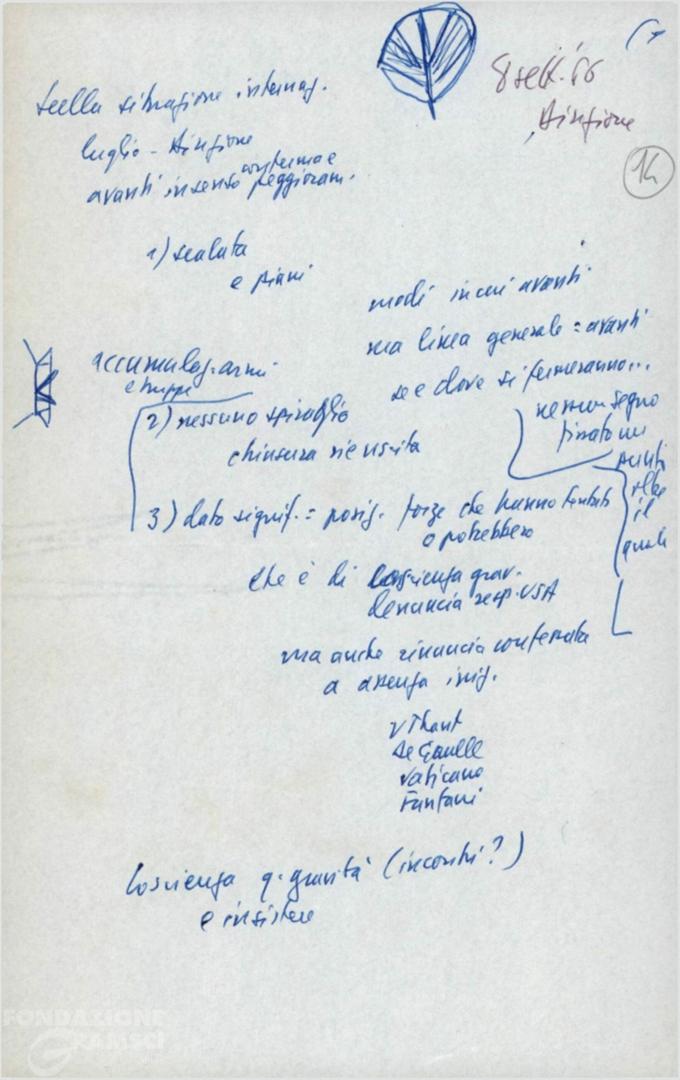 (1
8 sett. '66
Direzione
14
Sulla situazione internaz.
luglio - Direzione
conferma e
avanti in senso peggioram.
1) scalata
e piani
modi in cui avanti
ma linea generale = avanti
se e dove si fermeranno...
nessun segno
finato
punti
il
quale
accumulaz. armi
e truppe
2) nessuno spiraglio
chiusura via uscita
3) dato signif. = posiz. forze che hanno tentato
o potrebbero
che è di coscienza grav.
denuncia resp. USA
ma anche rinuncia confermata
a assenza iniz.
U Thant
De Gaulle
Vaticano
Fanfani
Coscienza q. gravità (incontri?)
e insistere
FONDAZIONE
GRAMSCI